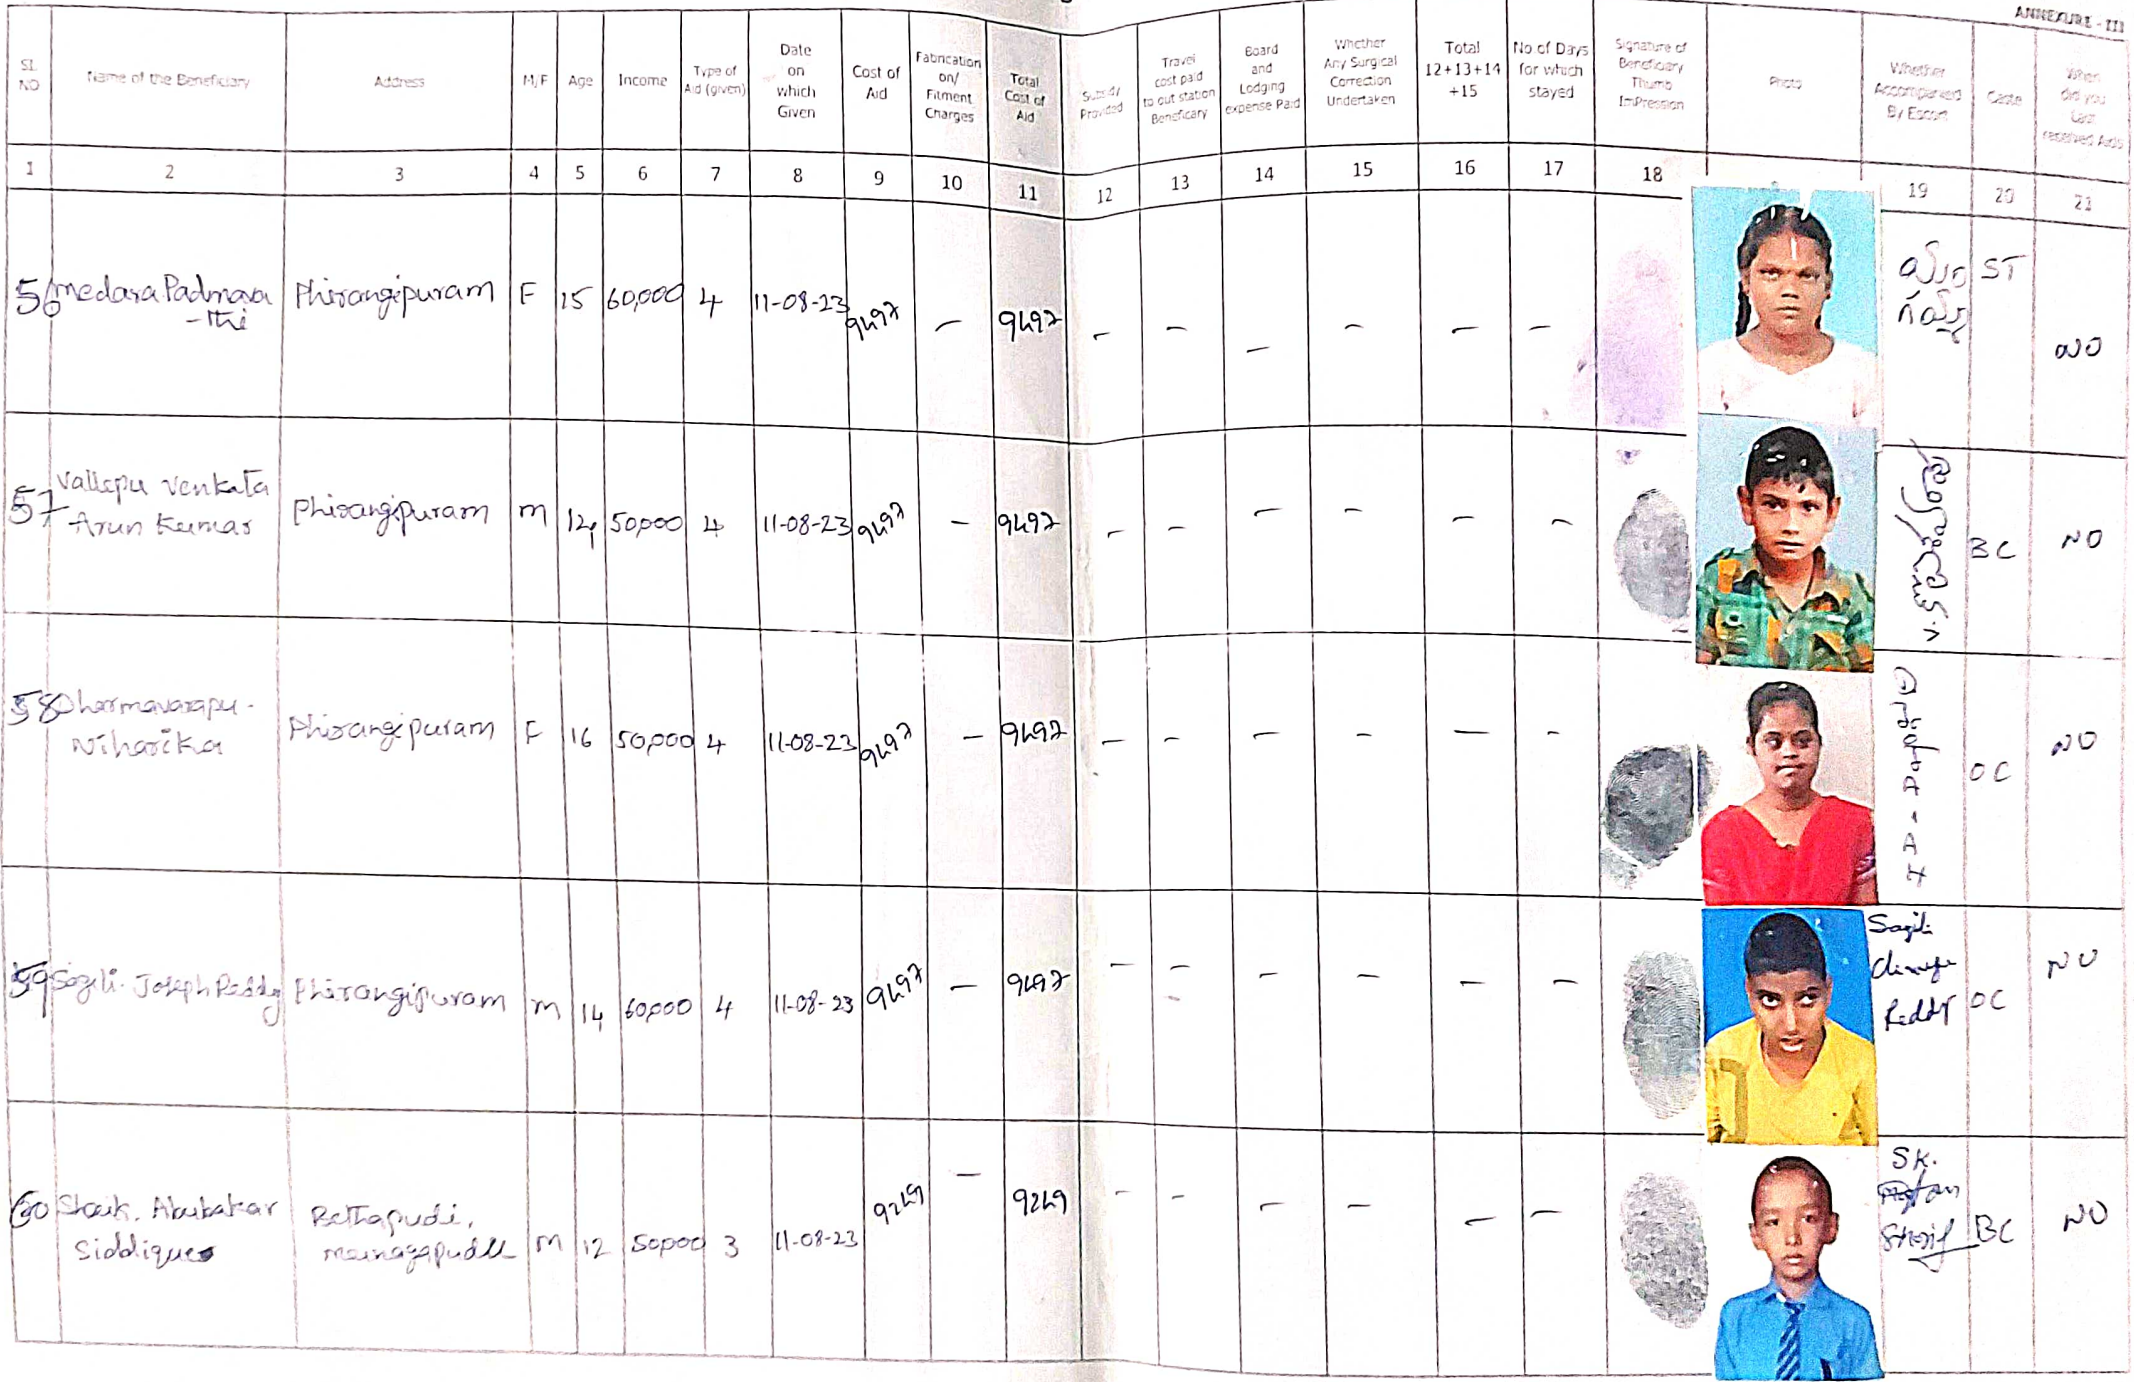 ANNEXURE - III
SL NO
Name of the Beneficiary
Address
M/F
Age
Income
Type of
Aid (given)
Date
on
which
Given
Cost of
Aid
Fabrication
on/
Fitment
Charges
Total
Cost of
Aid
Subsidy
Provided
Travel
cost paid
to out station
Beneficary
Board
and
Lodging
expense Paid
Whether
Any Surgical
Correction
Undertaken
Total
12+13+14
+15
No of Days
for which
stayed
Signature of
Beneficiary
Thumb
ImPression
Photo
Whether
Accompanied
By Escort
Caste
When
did you
Last
received Aids
1 2 3 4 5 6 7 8 9 10 11 12 13 14 15 16 17 18 19 20 21
56 Medara Padmava Phirangipuram F 15 60,000 4 11-08-23 9497 — 9497 — — — — — — ST NO
-thi
57 Vallepu Venkata Phirangipuram M 14 50,000 4 11-08-23 9497 — 9497 — — — — — — BC NO
Arun Kumar
58 Dharmavarapu - Phirangipuram F 16 50,000 4 11-08-23 9497 — 9497 — — — — — — OC NO
Niharika
59 Sagili. Joseph Reddy Phirangipuram M 14 60,000 4 11-08-23 9497 — 9497 — — — — — — Sagili Reddy OC NO
60 Shaik. Abubakar Bethapudi, M 12 50000 3 11-08-23 9249 — 9249 — — — — — — SK. BC NO
Siddique